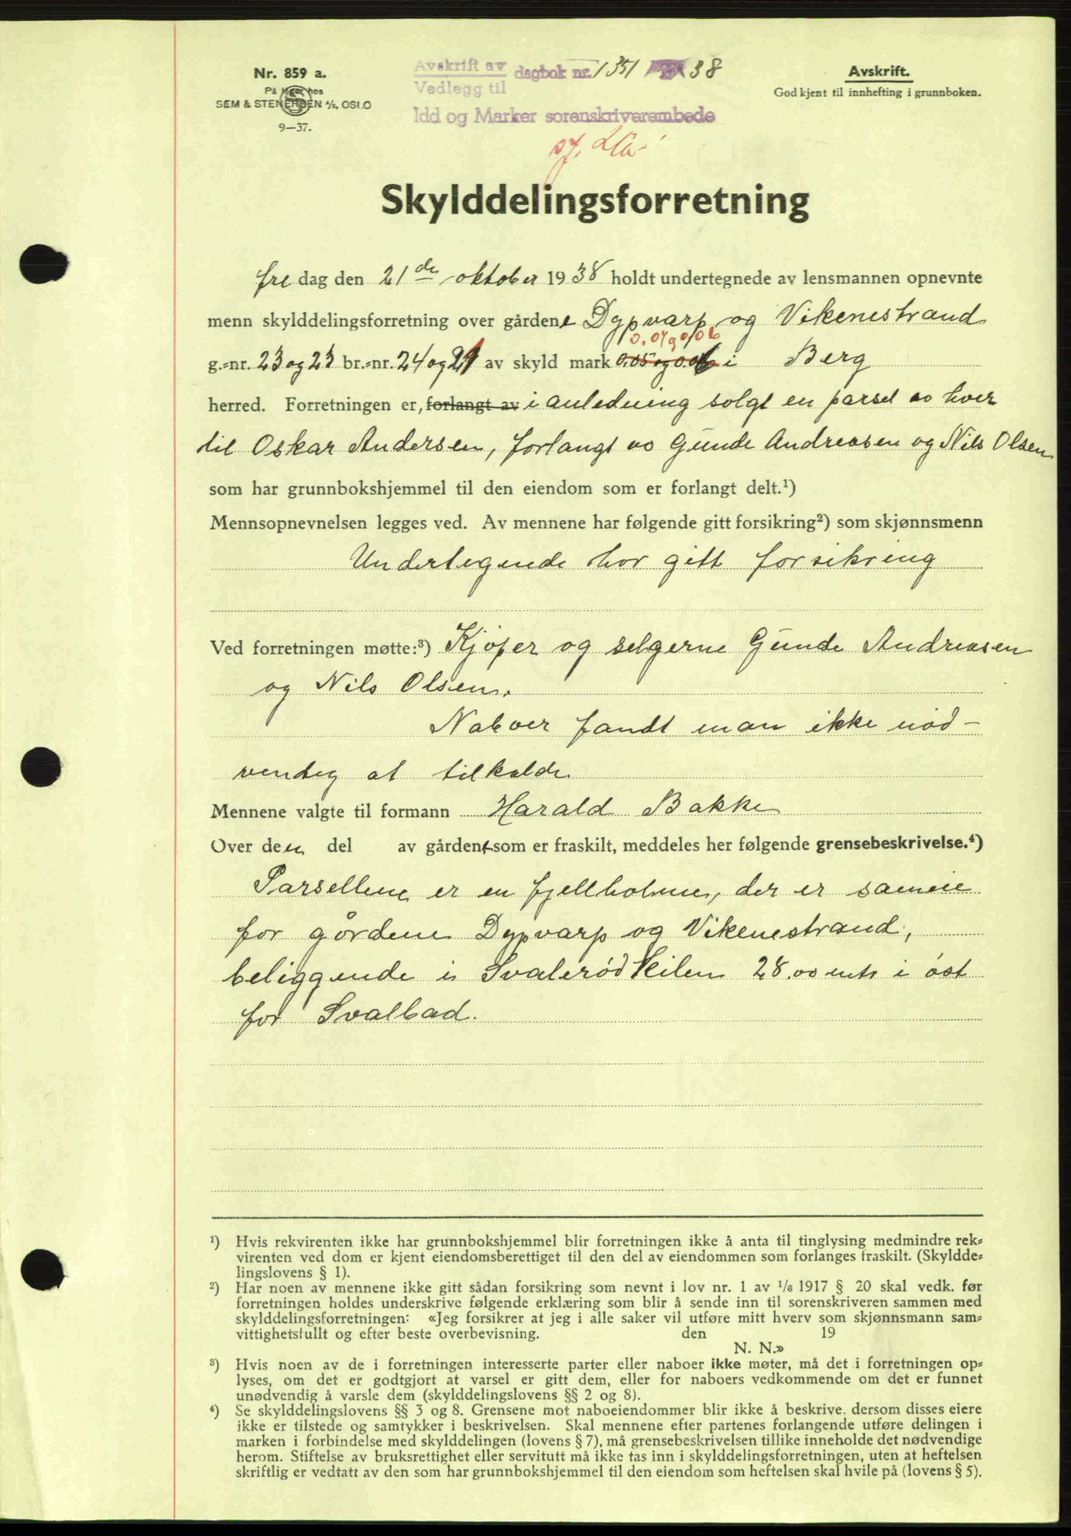 Nr. 859 a.
På lager hos
SEM & STENERSEN A/S, OSLO
9—37.
Avskrift av
Vedlegg til dagbok nr. 1351 38
Idd og Marker sorenskriverembede
Avskrift.
Godkjent til innhefting i grunnboken.
Skylddelingsforretning
fredag den 21de oktober 1938 holdt undertegnede av lensmannen opnevnte
menn skylddelingsforretning over gårdene Dypvarp og Vikenestrand
0.04 og 0.06
g.-nr. 23 og 23 br.-nr. 24 og 21 av skyld mark 0.05 og 0.06 i Berg
herred. Forretningen er, forlangt av i anledning solgt en parsel av hver
til Oskar Andersen, forlangt av Gunde Andreasen og Nils Olsen
som har grunnbokshjemmel til den eiendom som er forlangt delt.¹)
Mennsopnevnelsen legges ved. Av mennene har følgende gitt forsikring²) som skjønnsmenn
Undertegende har gitt forsikring
Ved forretningen møtte:³) Kjøper og selgerne Gunde Andreasen
og Nils Olsen.
Naboer fandt man ikke nød-
vendig at tilkalde
Mennene valgte til formann Harald Bakke
Over den del av gårdene som er fraskilt, meddeles her følgende grensebeskrivelse.⁴)
Parsellene er en fjellholme, der er sameie
for gårdene Dypvarp og Vikenestrand,
beliggende i Svalerødkilen 28.00 mtr i øst
for Svalbad.
¹) Hvis rekvirenten ikke har grunnbokshjemmel blir forretningen ikke å anta til tinglysing medmindre rek-
virenten ved dom er kjent eiendomsberettiget til den del av eiendommen som forlanges fraskilt. (Skyldde-
lingslovens § 1).
²) Har noen av mennene ikke gitt sådan forsikring som nevnt i lov nr. 1 av 1/6 1917 § 20 skal vedk. før
forretningen holdes underskrive følgende erklæring som blir å sende inn til sorenskriveren sammen med
skylddelingsforretningen: «Jeg forsikrer at jeg i alle saker vil utføre mitt hverv som skjønnsmann sam-
vittighetsfullt og efter beste overbevisning. den 19
N. N.»
³) Hvis noen av de i forretningen interesserte parter eller naboer ikke møter, må det i forretningen op-
lyses, om det er godtgjort at varsel er gitt dem, eller for naboers vedkommende om det er funnet
unødvendig å varsle dem (skylddelingslovens §§ 2 og 8).
⁴) Se skylddelingslovens §§ 3 og 8. Grensene mot naboeiendommer blir ikke å beskrive. dersom disses eiere
ikke er tilstede og samtykker i beskrivelsen. Skal mennene efter partenes forlangende utføre delingen i
marken i forbindelse med skylddelingen (lovens § 7), må grensebeskrivelsen tillike inneholde det nødvendige
herom. Stiftelse av bruksrettighet eller servitutt må ikke tas inn i skylddelingsforretningen, uten at heftelsen
skriftlig er vedtatt av den som har grunnbokshjemmel til den eiendom som heftelsen skal hvile på (lovens § 5).